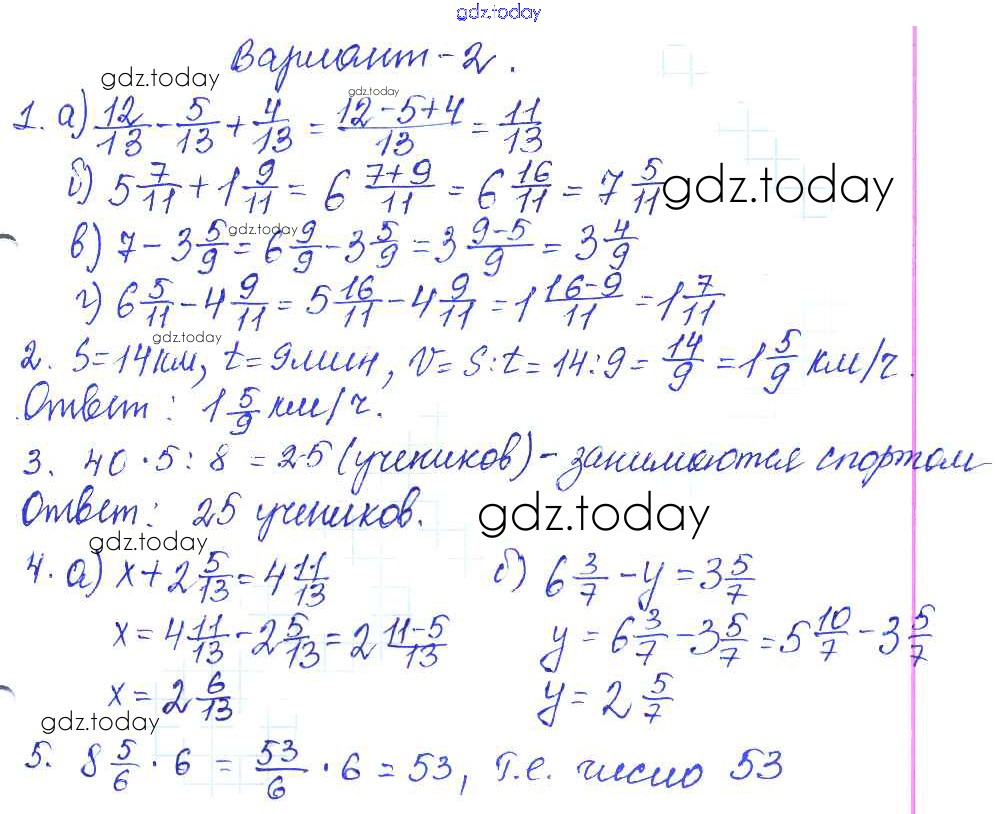 gdz.today
Вариант-2.
gdz.today
gdz.today
1. а) 12/13 - 5/13 + 4/13 = (12-5+4)/13 = 11/13
б) 5 7/11 + 1 9/11 = 6 (7+9)/11 = 6 16/11 = 7 5/11
gdz.today
в) 7 - 3 5/9 = 6 9/9 - 3 5/9 = 3 (9-5)/9 = 3 4/9
gdz.today
г) 6 5/11 - 4 9/11 = 5 16/11 - 4 9/11 = 1 (16-9)/11 = 1 7/11
gdz.today
2. S=14км, t=9мин, V= S:t = 14:9 = 14/9 = 1 5/9 км/ч.
Ответ: 1 5/9 км/ч.
3. 40 · 5 : 8 = 25 (учеников) - занимаются спортом
Ответ: 25 учеников.
gdz.today
gdz.today
4. а) x + 2 5/13 = 4 11/13 б) 6 3/7 - y = 3 5/7
x = 4 11/13 - 2 5/13 = 2 (11-5)/13 y = 6 3/7 - 3 5/7 = 5 10/7 - 3 5/7
x = 2 6/13 y = 2 5/7
gdz.today
5. 8 5/6 · 6 = 53/6 · 6 = 53, т.е. число 53